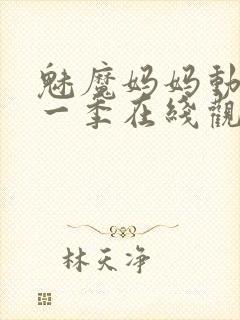 魅魔妈妈動
一季在綫觀
林天净